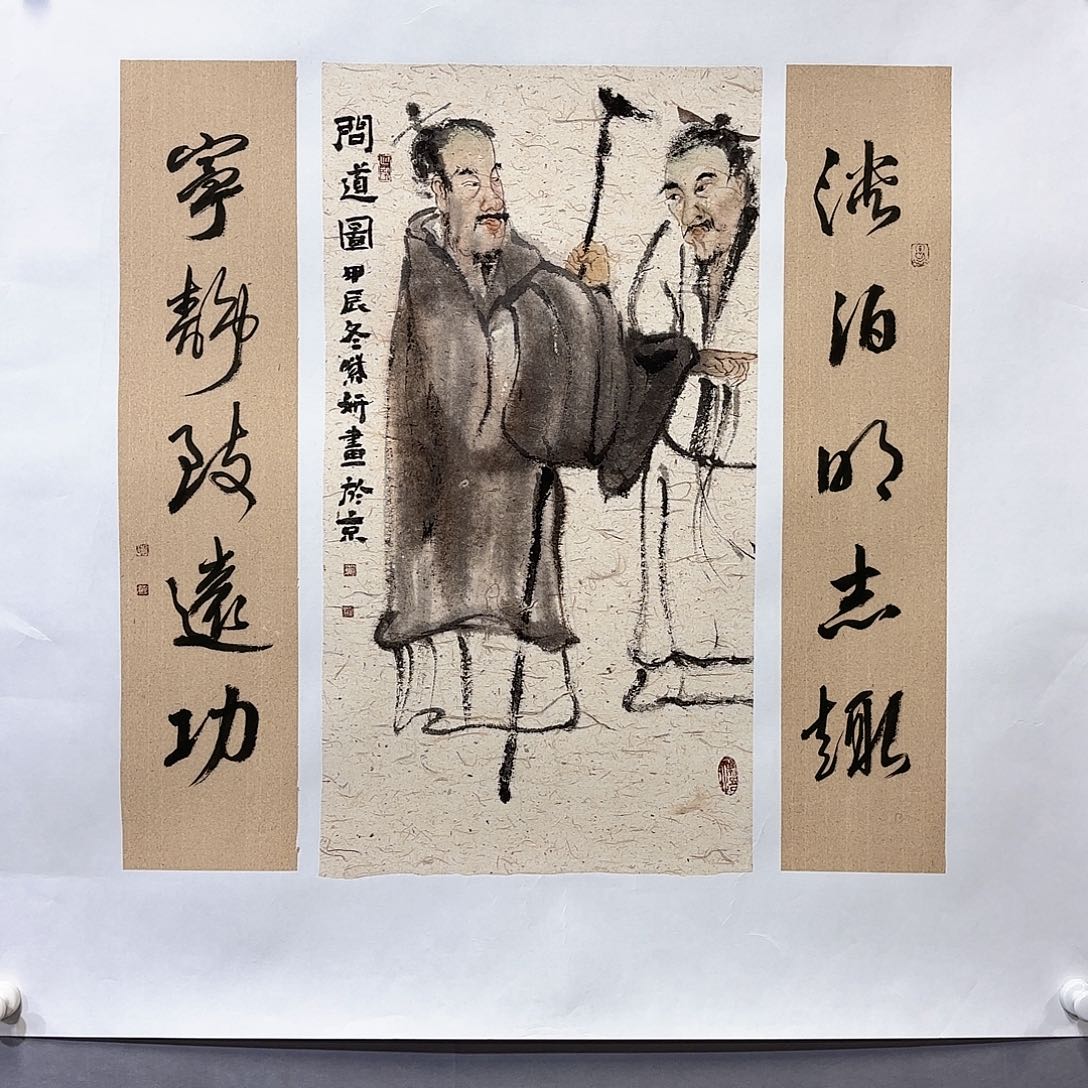 淡泊明志趣
問道圖 甲辰冬妍畫於京
寧靜致遠功